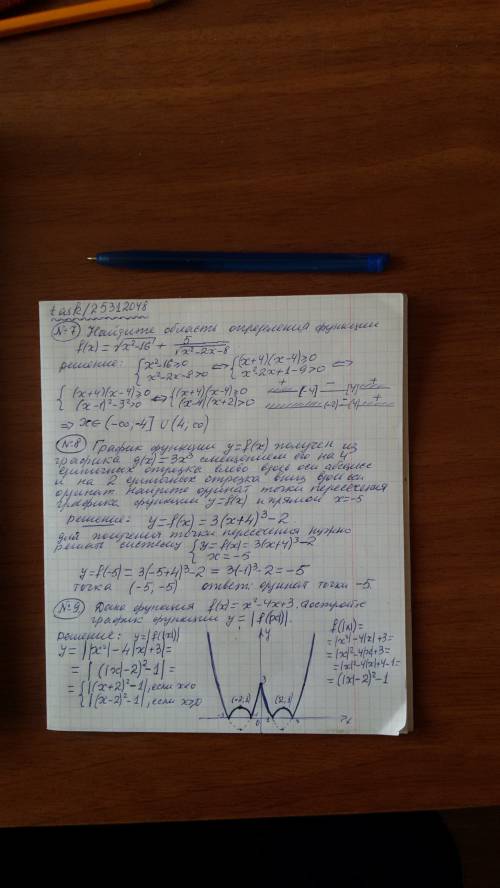 task/25312048
№7 Найдите область определения функции
f(x) = √x²-16 + 5/√x²-2x-8
решение: { x²-16≥0 x²-2x-8>0 ⇔ { (x+4)(x-4)≥0 x²-2x+1-9>0 ⇔
{ (x+4)(x-4)≥0 (x-1)²-3²>0 ⇔ { (x+4)(x-4)≥0 (x-4)(x+2)>0 + [-4] - [4] + + (-2) - (4) +
⇒ x∈(-∞,-4] ∪ (4,∞)
№8 График функции y=f(x) получен из
графика g(x)=3x³ смещением его на 4
единичных отрезка влево вдоль оси абсцисс
и на 2 единичных отрезка вниз вдоль оси
ординат. Найдите ординат точки пересечения
графика функции y=f(x) и прямой x=-5
решение: y=f(x)=3(x+4)³-2
для получения точки пересечения нужно
решить систему { y=f(x)=3(x+4)³-2 x=-5
y=f(-5) = 3(-5+4)³-2 = 3(-1)³-2 = -5
точка (-5,-5) ответ: ординат точки -5.
№9 Дана функция f(x)=x²-4x+3. Постройте
график функции y=|f(|x|)|.
Решение: y=|f(|x|)|
y = ||x²|-4|x|+3| =
= |(|x|-2)²-1| =
= { |(x+2)²-1|, если x<0
|(x-2)²-1|, если x≥0
y
3
(-2;1) (2;1)
0
x
f(|x|)=
=|x²|-4|x|+3=
=|x|²-4|x|+3=
=|x|²-4|x|+4-1=
=(|x|-2)²-1